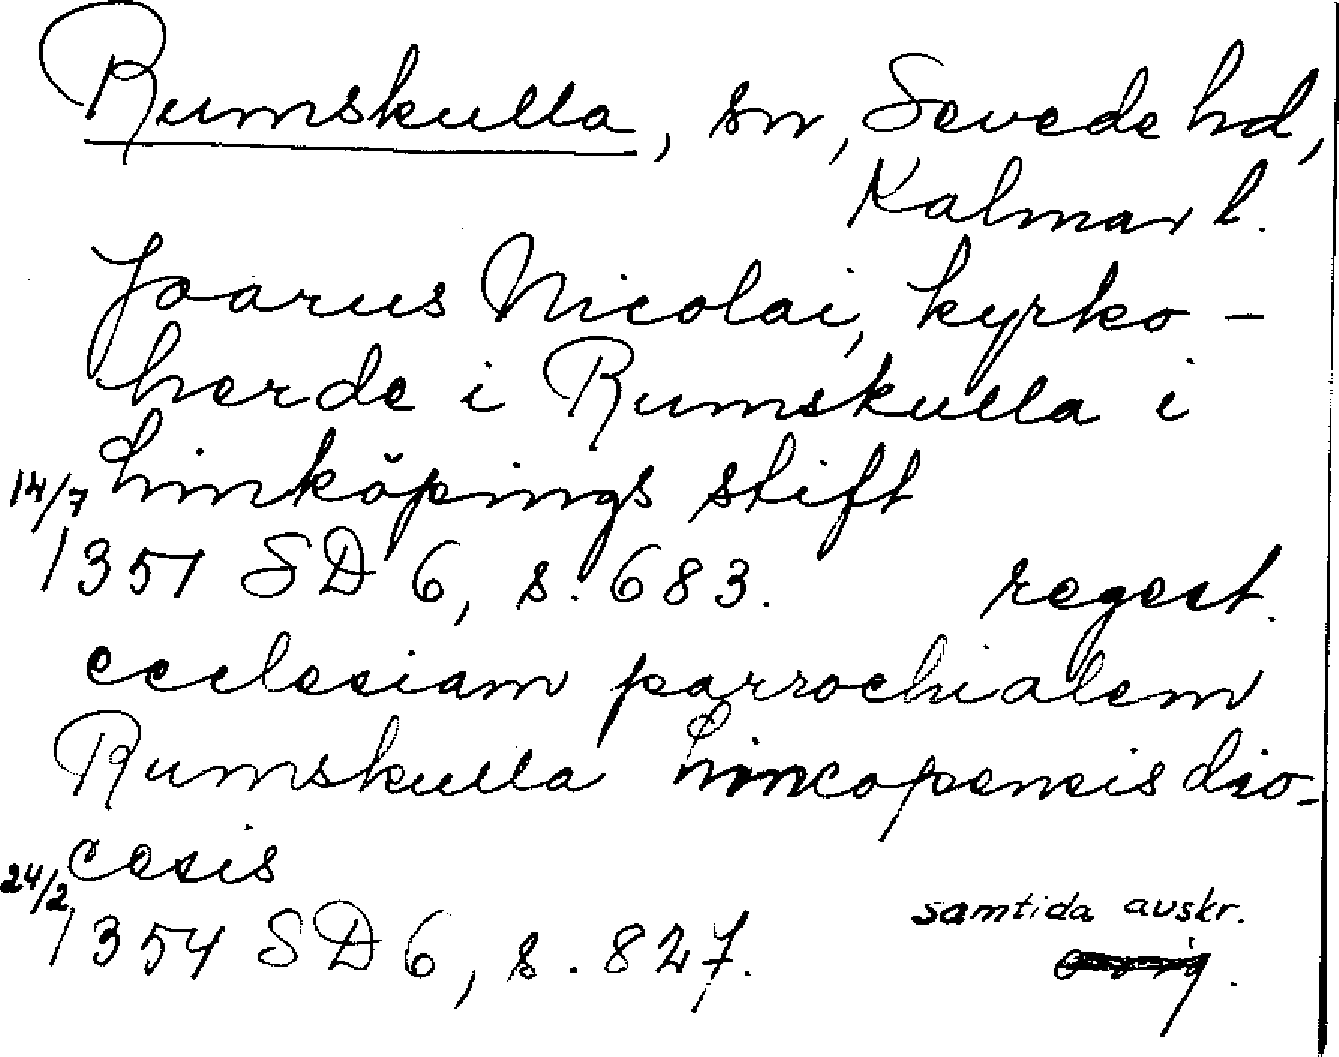 Rumskulla, sn, Sevede hd,
Kalmar l.
Joarus Nicolai, kyrko-
herde i Rumskulla i
Linköpings stift
14/7
1351 SD 6, s. 683. regest.
ecclesiam parrochialem
Rumskulla Lincopensis dio-
cesis
24/2
1354 SD 6, s. 827. samtida avskr.